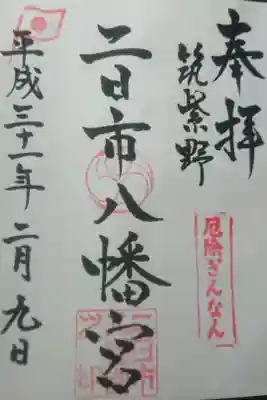 奉拝
筑紫野
厄除ぎんなん
二日市八幡宮
平成三十一年二月九日